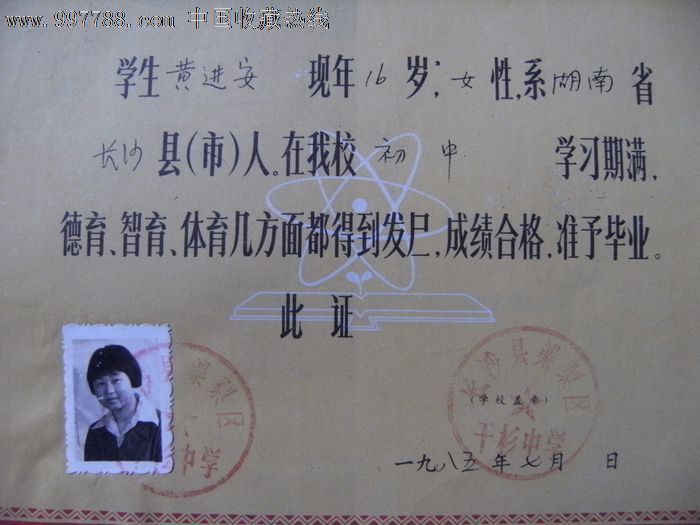 www.997788.com 中国收藏热线
学生黄进安 现年16岁；女性，系湖南省
长沙县（市）人。在我校初中 学习期满，
德育、智育、体育几方面都得到发展，成绩合格，准予毕业。
此证
长沙县㮾梨区
干杉中学
（学校盖章）
一九八五年七月 日